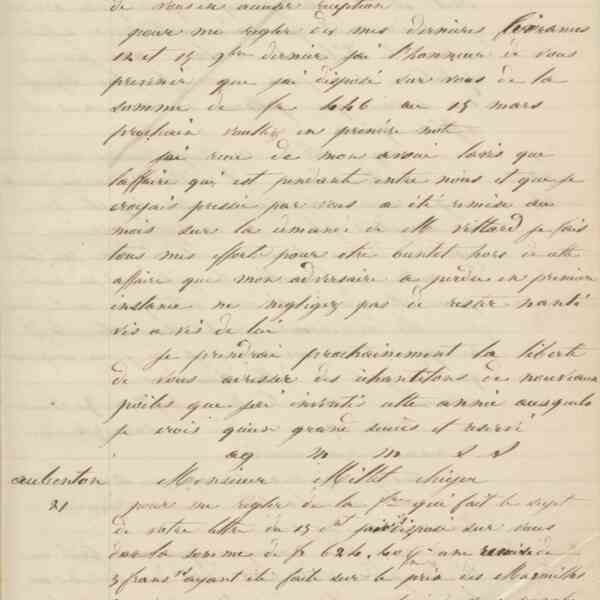 de vous en accuser reception
pour me regler des mes dernieres livraisons
12 et 15 9bre dernier j'ai l'honneur de vous
prevenir que j'ai disposé sur vous de la
somme de fr 446 au 15 mars
prochain veuillez en prendre note
j'ai reçu de mon avoué l'avis que
l'affaire qui est pendante entre nous et que je
croyais pressée par vous a été remise au
mois sur la demande de M je fais
tous mes efforts pour etre bientot hors de cette
affaire que mon adversaire a perdu en premier
instance ne negligez pas de rester nanti
vis a vis de lui
je prendrai prochainement la liberté
de vous adresser des échantillons de nouveaux
que j'ai inventés cette année auxquels
je crois qu'un grand succès est reservé
ag m m s s
aubenton Monsieur Millet
21 pour me regler de la fre qui fait le sujet
de votre lettre du 15 disposé sur vous
la somme de fr 624. une remise de
3 francs ayant été faite sur le prix des Marmites